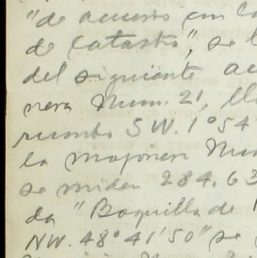 "de acuerdo con la
de Catastro", se l
del siguiente ac
nera Num. 21, ll
rumbo SW. 1° 54
la mojonera Nu
se miden 284.63
da "Boquilla de
NW. 48° 41' 50" se